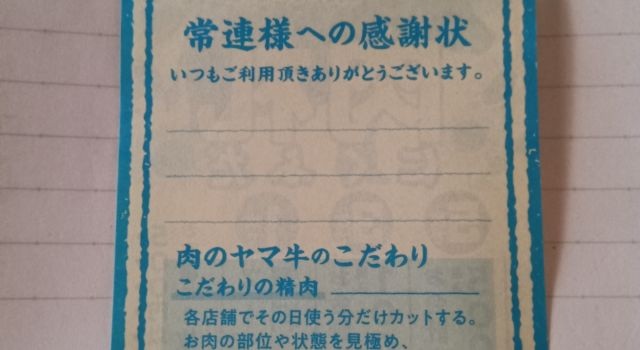 常連様への感謝状
いつもご利用頂きありがとうございます。
肉のヤマ牛のこだわり
こだわりの精肉
各店舗でその日使う分だけカットする。
お肉の部位や状態を見極め、